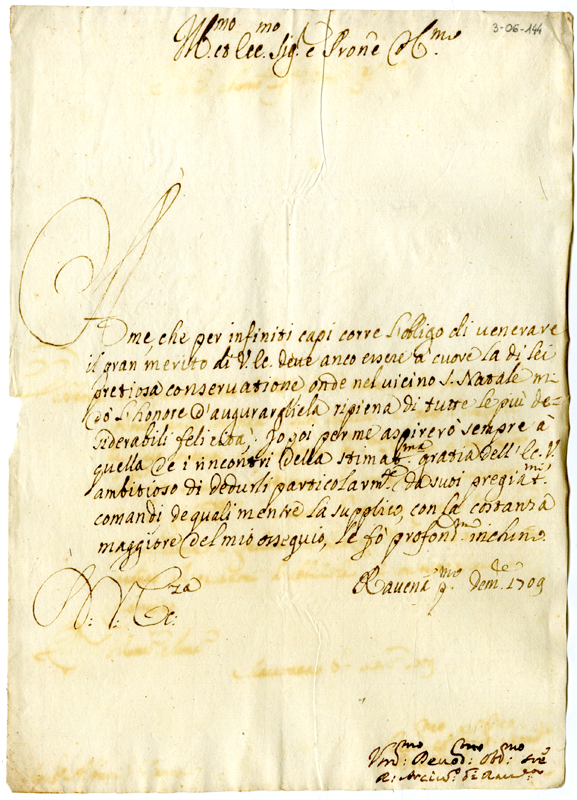 3-06-144
Ill.mo et Ecc.mo Sig.r e Prone Col.mo
A me, che per infiniti capi corre l'obligo di venerare
il gran merito di V. Ec. deve anco essere à cuore la di lei
pretiosa conservatione onde nel vicino S. Natale mi
dò l'honore d'augurargliela ripiena di tutte le più de=
siderabili felicità. Io poi per me aspirerò sempre à
quella de i rincontri della stimat.ma gratia dell'Ec. V.
ambitioso di dedurli particolarm.te da suoi pregiat.mi
comandi de quali mentre la supplico, con la costanza
maggiore del mio ossequio, le fò profond.mo inchino.
Ravena p.mo Dem.re 1709
D: V: Ec:za
Um.mo Devod.mo Obd.mo Sre
A: Arciv.o di Raven